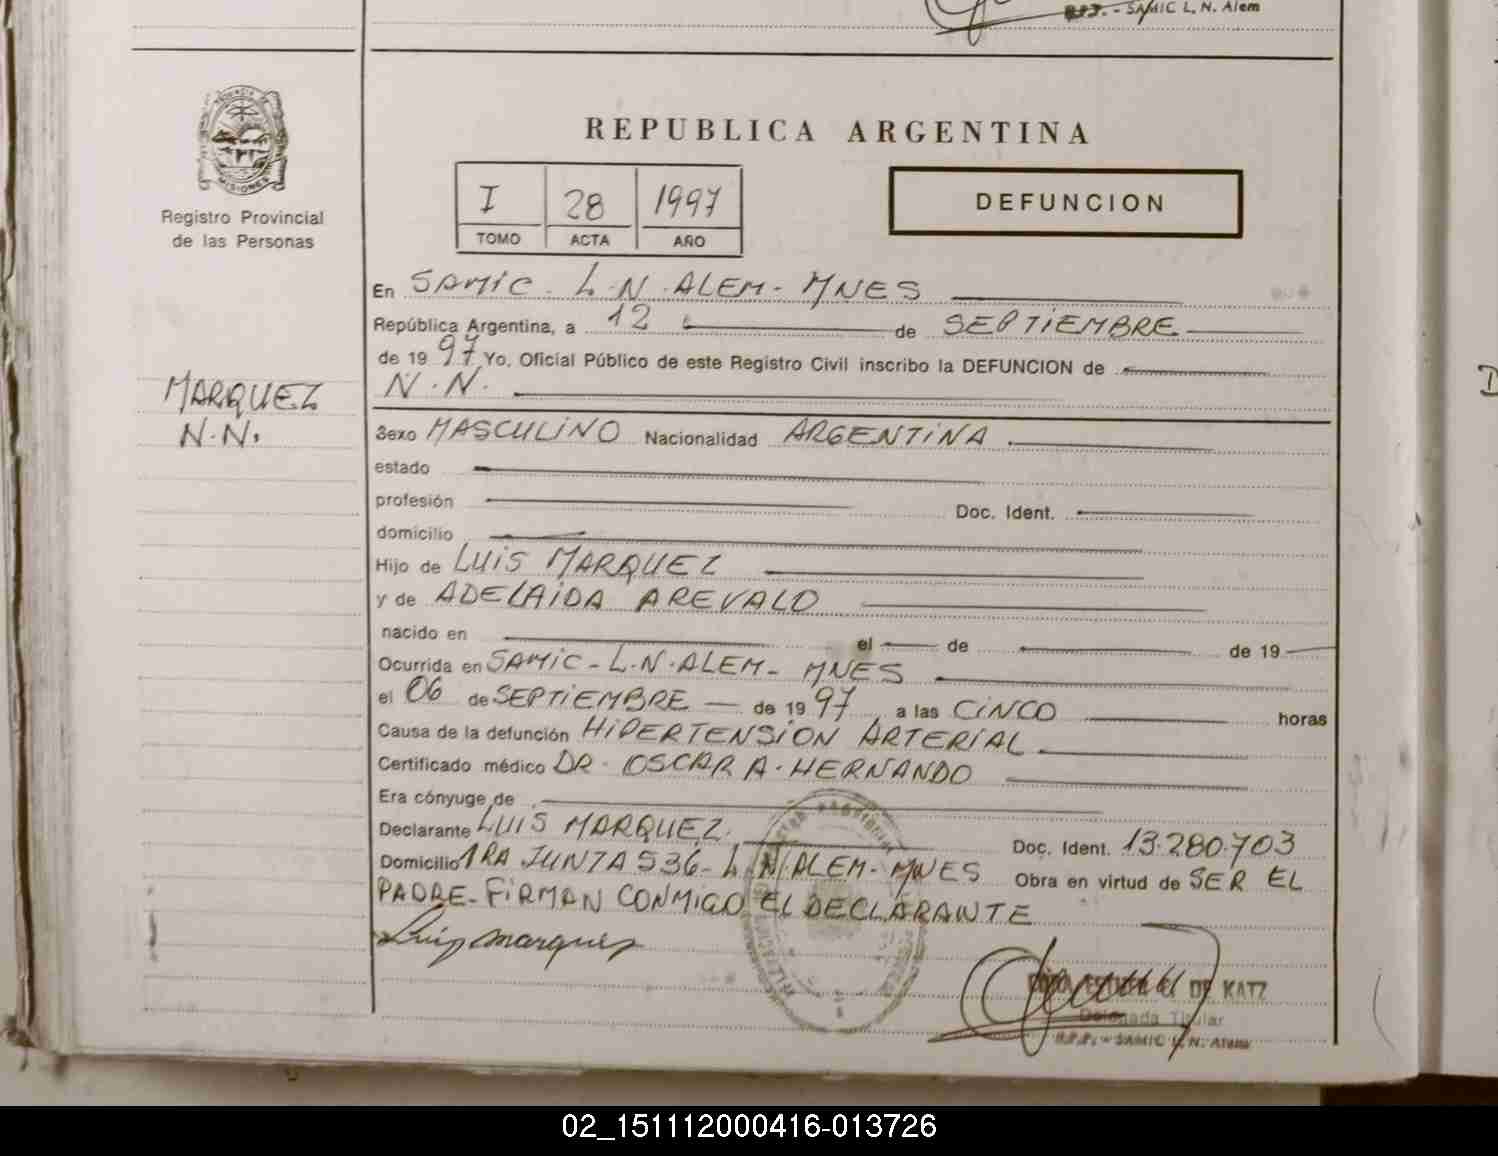 R.P.P. - SAMIC L. N. Alem
PROVINCIA DE
MISIONES
Registro Provincial
de las Personas
MARQUEZ
N.N.
REPUBLICA ARGENTINA
I 28 1997
TOMO ACTA AÑO
DEFUNCION
En SAMIC - L.N. ALEM - MNES
República Argentina, a 12 de SEPTIEMBRE
de 1997 Yo, Oficial Público de este Registro Civil inscribo la DEFUNCION de
N.N.
Sexo MASCULINO Nacionalidad ARGENTINA
estado
profesión Doc. Ident.
domicilio
Hijo de LUIS MARQUEZ
y de ADELAIDA AREVALO
nacido en el de de 19
Ocurrida en SAMIC - L.N. ALEM - MNES
el 06 de SEPTIEMBRE de 1997, a las CINCO horas
Causa de la defunción HIPERTENSION ARTERIAL
Certificado médico DR. OSCAR A. HERNANDO
Era cónyuge de
Declarante LUIS MARQUEZ. Doc. Ident. 13.280.703
Domicilio 1RA JUNTA 536 - L.N. ALEM - MNES Obra en virtud de SER EL
PADRE - FIRMAN CONMIGO EL DECLARANTE
Luis Marquez
DE KATZ
Delegada Titular
R.P.P. - SAMIC L. N. Alem
02_151112000416-013726